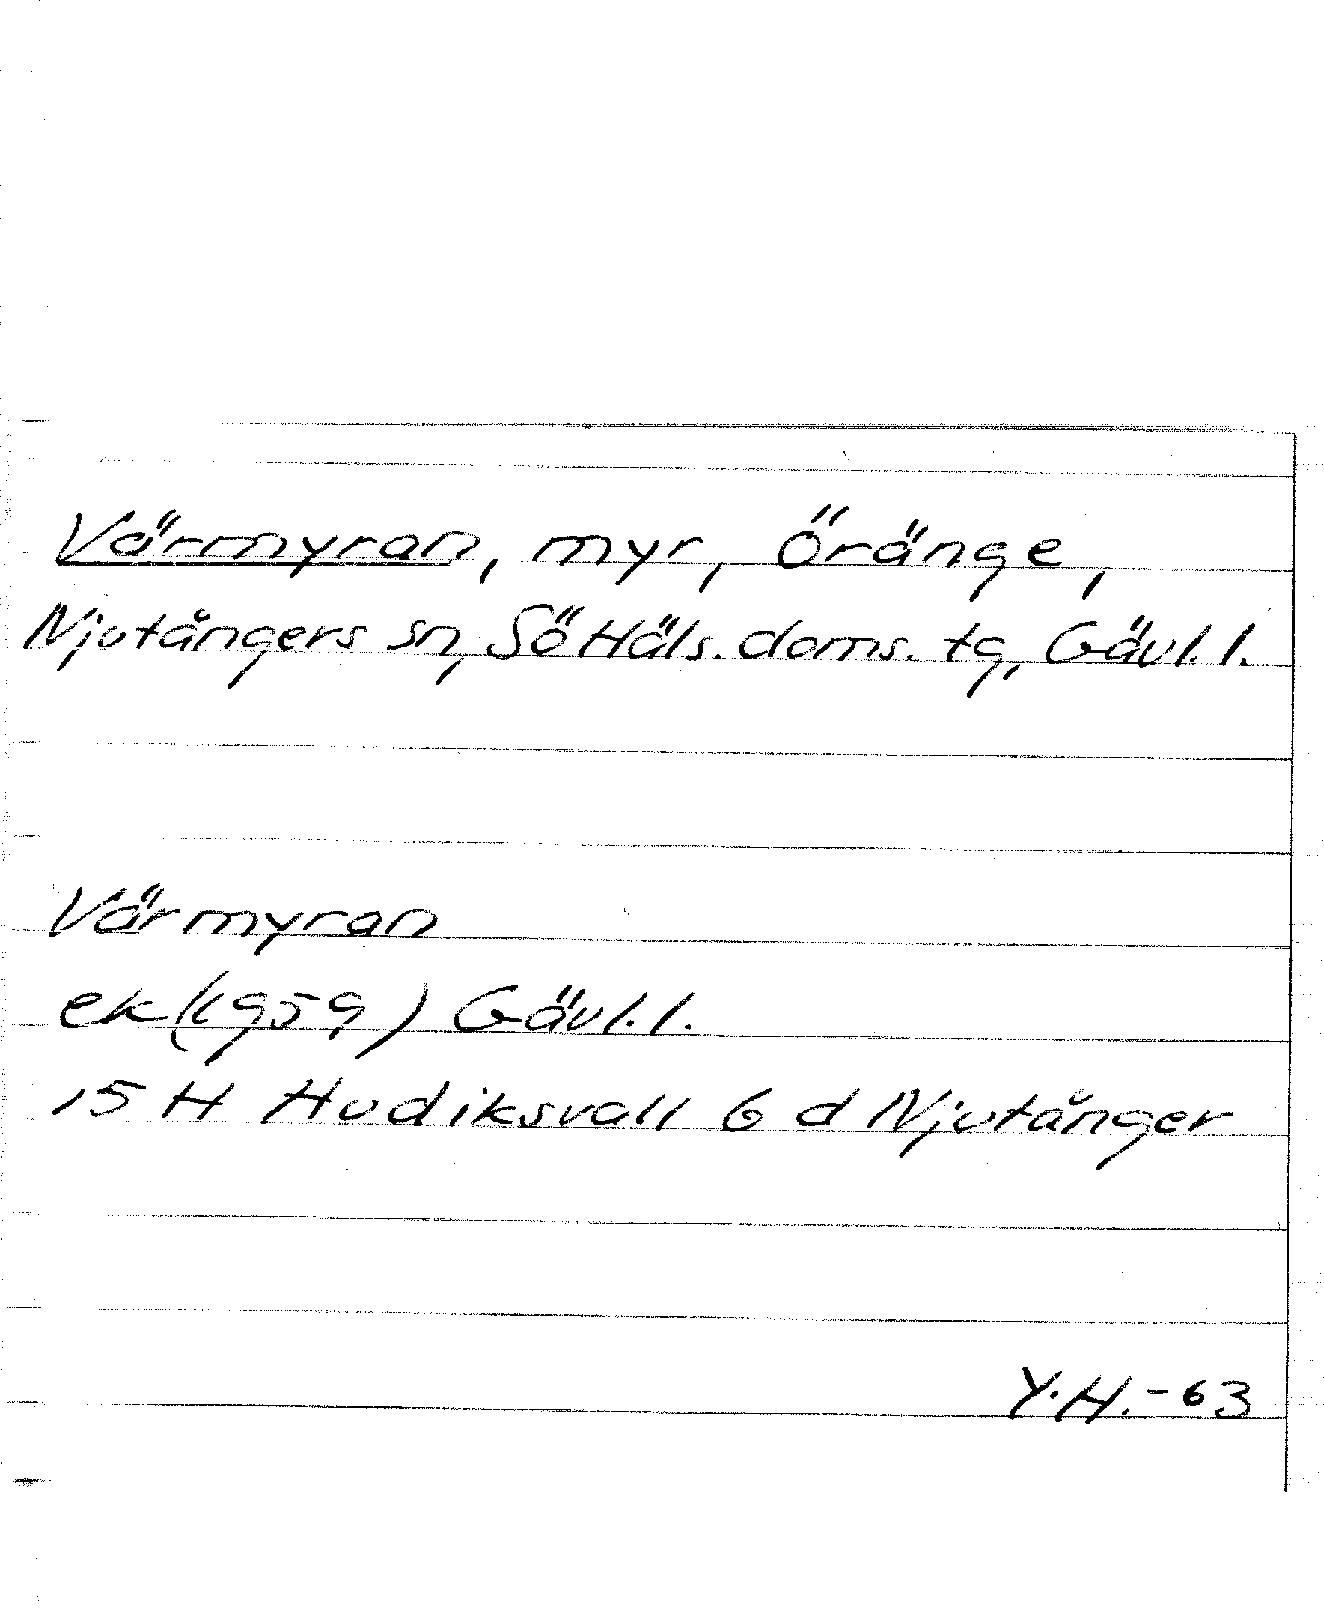 Värmyran, myr, Öränge,
Njutångers sn, Sö Häls. doms. tg, Gävl. l.
Värmyran
ek (1959) Gävl. l.
15 H Hudiksvall 6 d Njutånger
Y. H. - 63